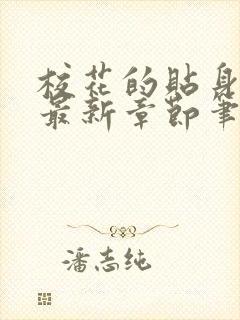 校花的贴身
最新章节笔
潘志纯